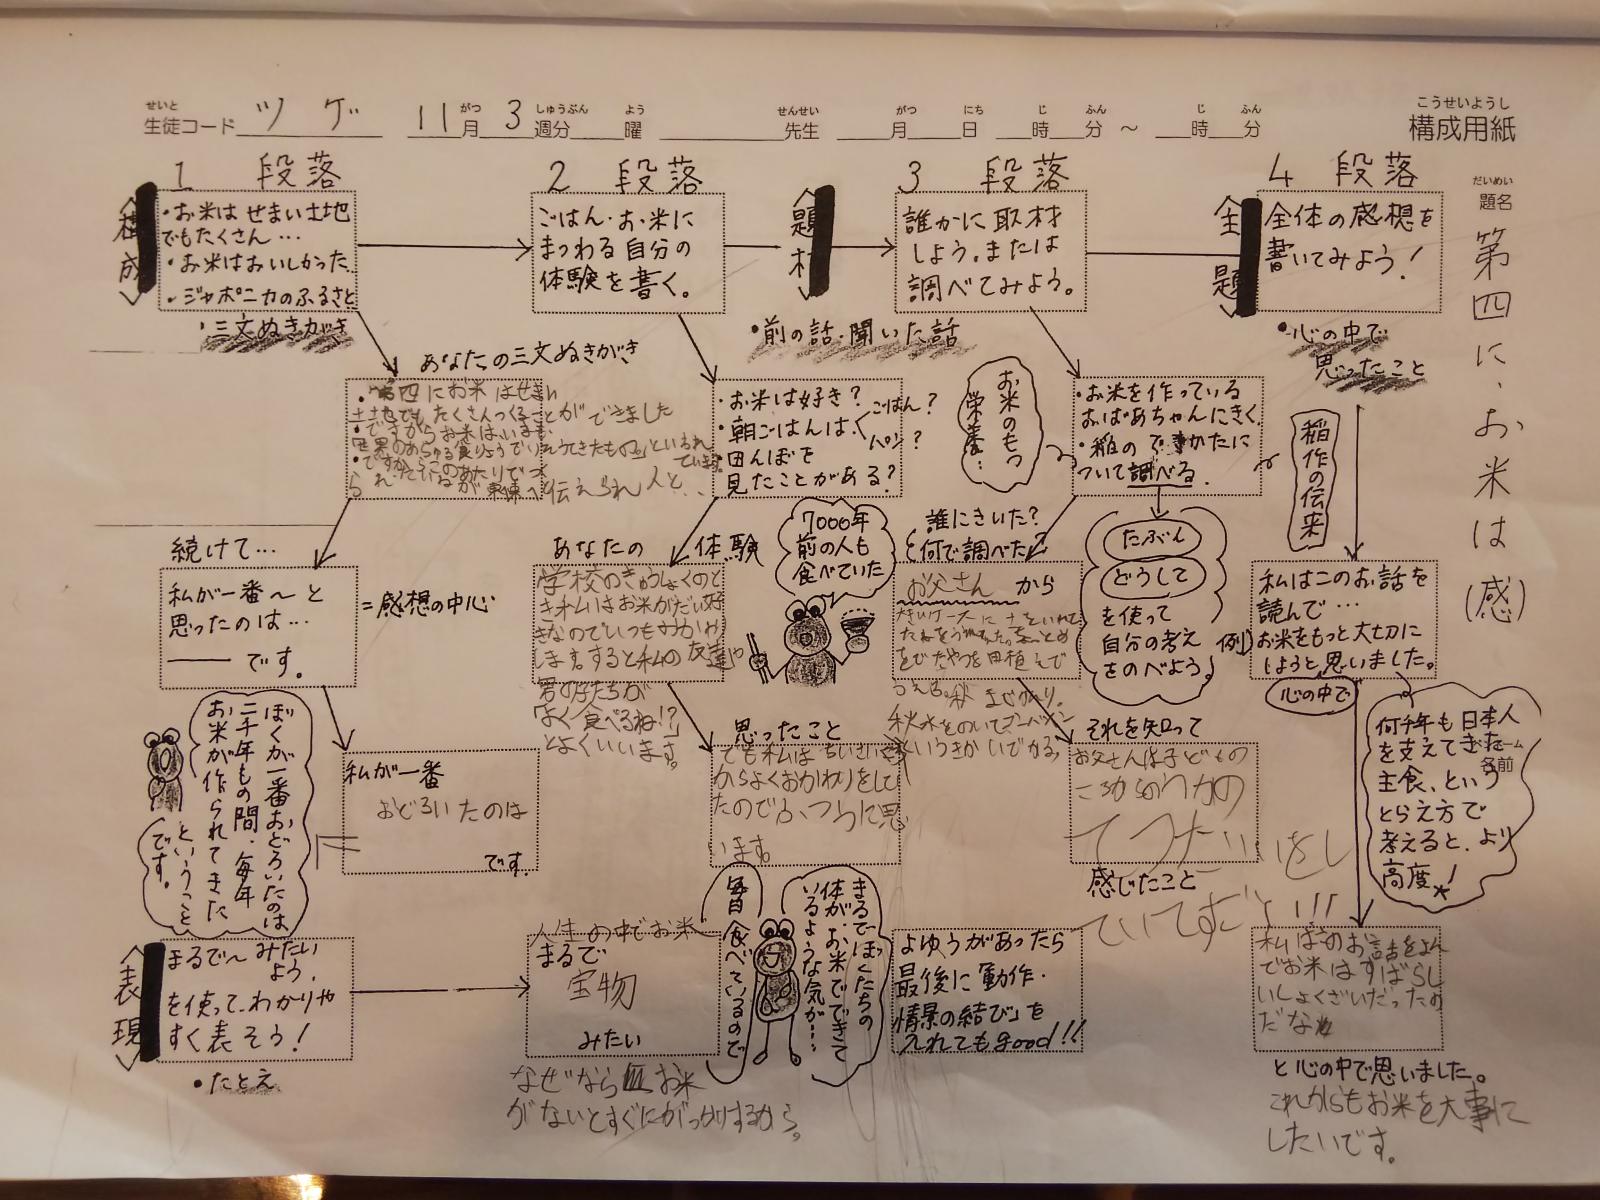 せいと
生徒コード ツゲ 11月 3週分 曜 先生 月 日 時 分 ~ 時 分
がつ しゅうぶん よう せんせい がつ にち じ ふん じ ふん
こうせいようし
構成用紙
だいめい
題名
第四に、お米は(感)
1 段落
〈構成〉
・お米はせまい土地
でもたくさん…
・お米はおいしかった
・ジャポニカのふるさと
・三文ぬきがき
あなたの三文ぬきがき
・第四にお米はせまい
土地でもたくさんつくることができました
・ですからお米はいまも
続けて…
私が一番~と
思ったのは…
―です。
=感想の中心
私が一番
おどろいたのは
です。
ぼくが一番おどろいたのは
二千年もの間、毎年
お米が作られてきた
ということ
です。
〈表現〉
まるで~みたい
よう。
を使って、わかりや
すく表そう!
・たとえ
2 段落
ごはん・お米に
まつわる自分の
体験を書く。
・お米は好き?
・朝ごはんは、
ごはん?
パン?
・田んぼを
見たことがある?
あなたの体験
学校のきゅうしょくのと
き私はお米がだい好
きなのでいつもおかわ
します。すると私の友達や
男の子たちが
「よく食べるね!?」
とよくいいます。
7000年
前の人も
食べていた
思ったこと
でも私はちいさいときか
らよくおかわりをして
たのでふつうに思
います。
人生の中でお米
まるで
宝物
みたい
毎日食べているので
なぜならお米
がないとすぐにがっかりするから。
まるでぼくたちの
体が、お米でできて
いるような気が…
〈題材〉
・前の話・聞いた話
3 段落
誰かに取材
しよう。または
調べてみよう。
お米のもつ
栄養…
・お米を作っている
おばあちゃんにきく。
・稲のでき方に
ついて調べる。
誰にきいた?
何で調べた?
お父さんから
たぶん
どうして
を使って
自分の考え
をのべよう。
それを知って
お父さんは子どもの
ころからのうかの
てつだいをし
ていてすごい!!!
感じたこと
よゆうがあったら
最後に「動作・
情景の結び」を
入れてもgood!!
4 段落
〈主題〉
全体の感想を
書いてみよう!
・心の中で
思ったこと
稲作の伝来
例)
私はこのお話を
読んで…
お米をもっと大切に
しようと思いました。
心の中で
何千年も日本人
を支えてきた
主食、という
とらえ方で
考えると、より
高度!
名前
私はこのお話をよん
でお米はすばらし
いしょくざいだったの
だな
と心の中で思いました。
これからもお米を大事に
したいです。